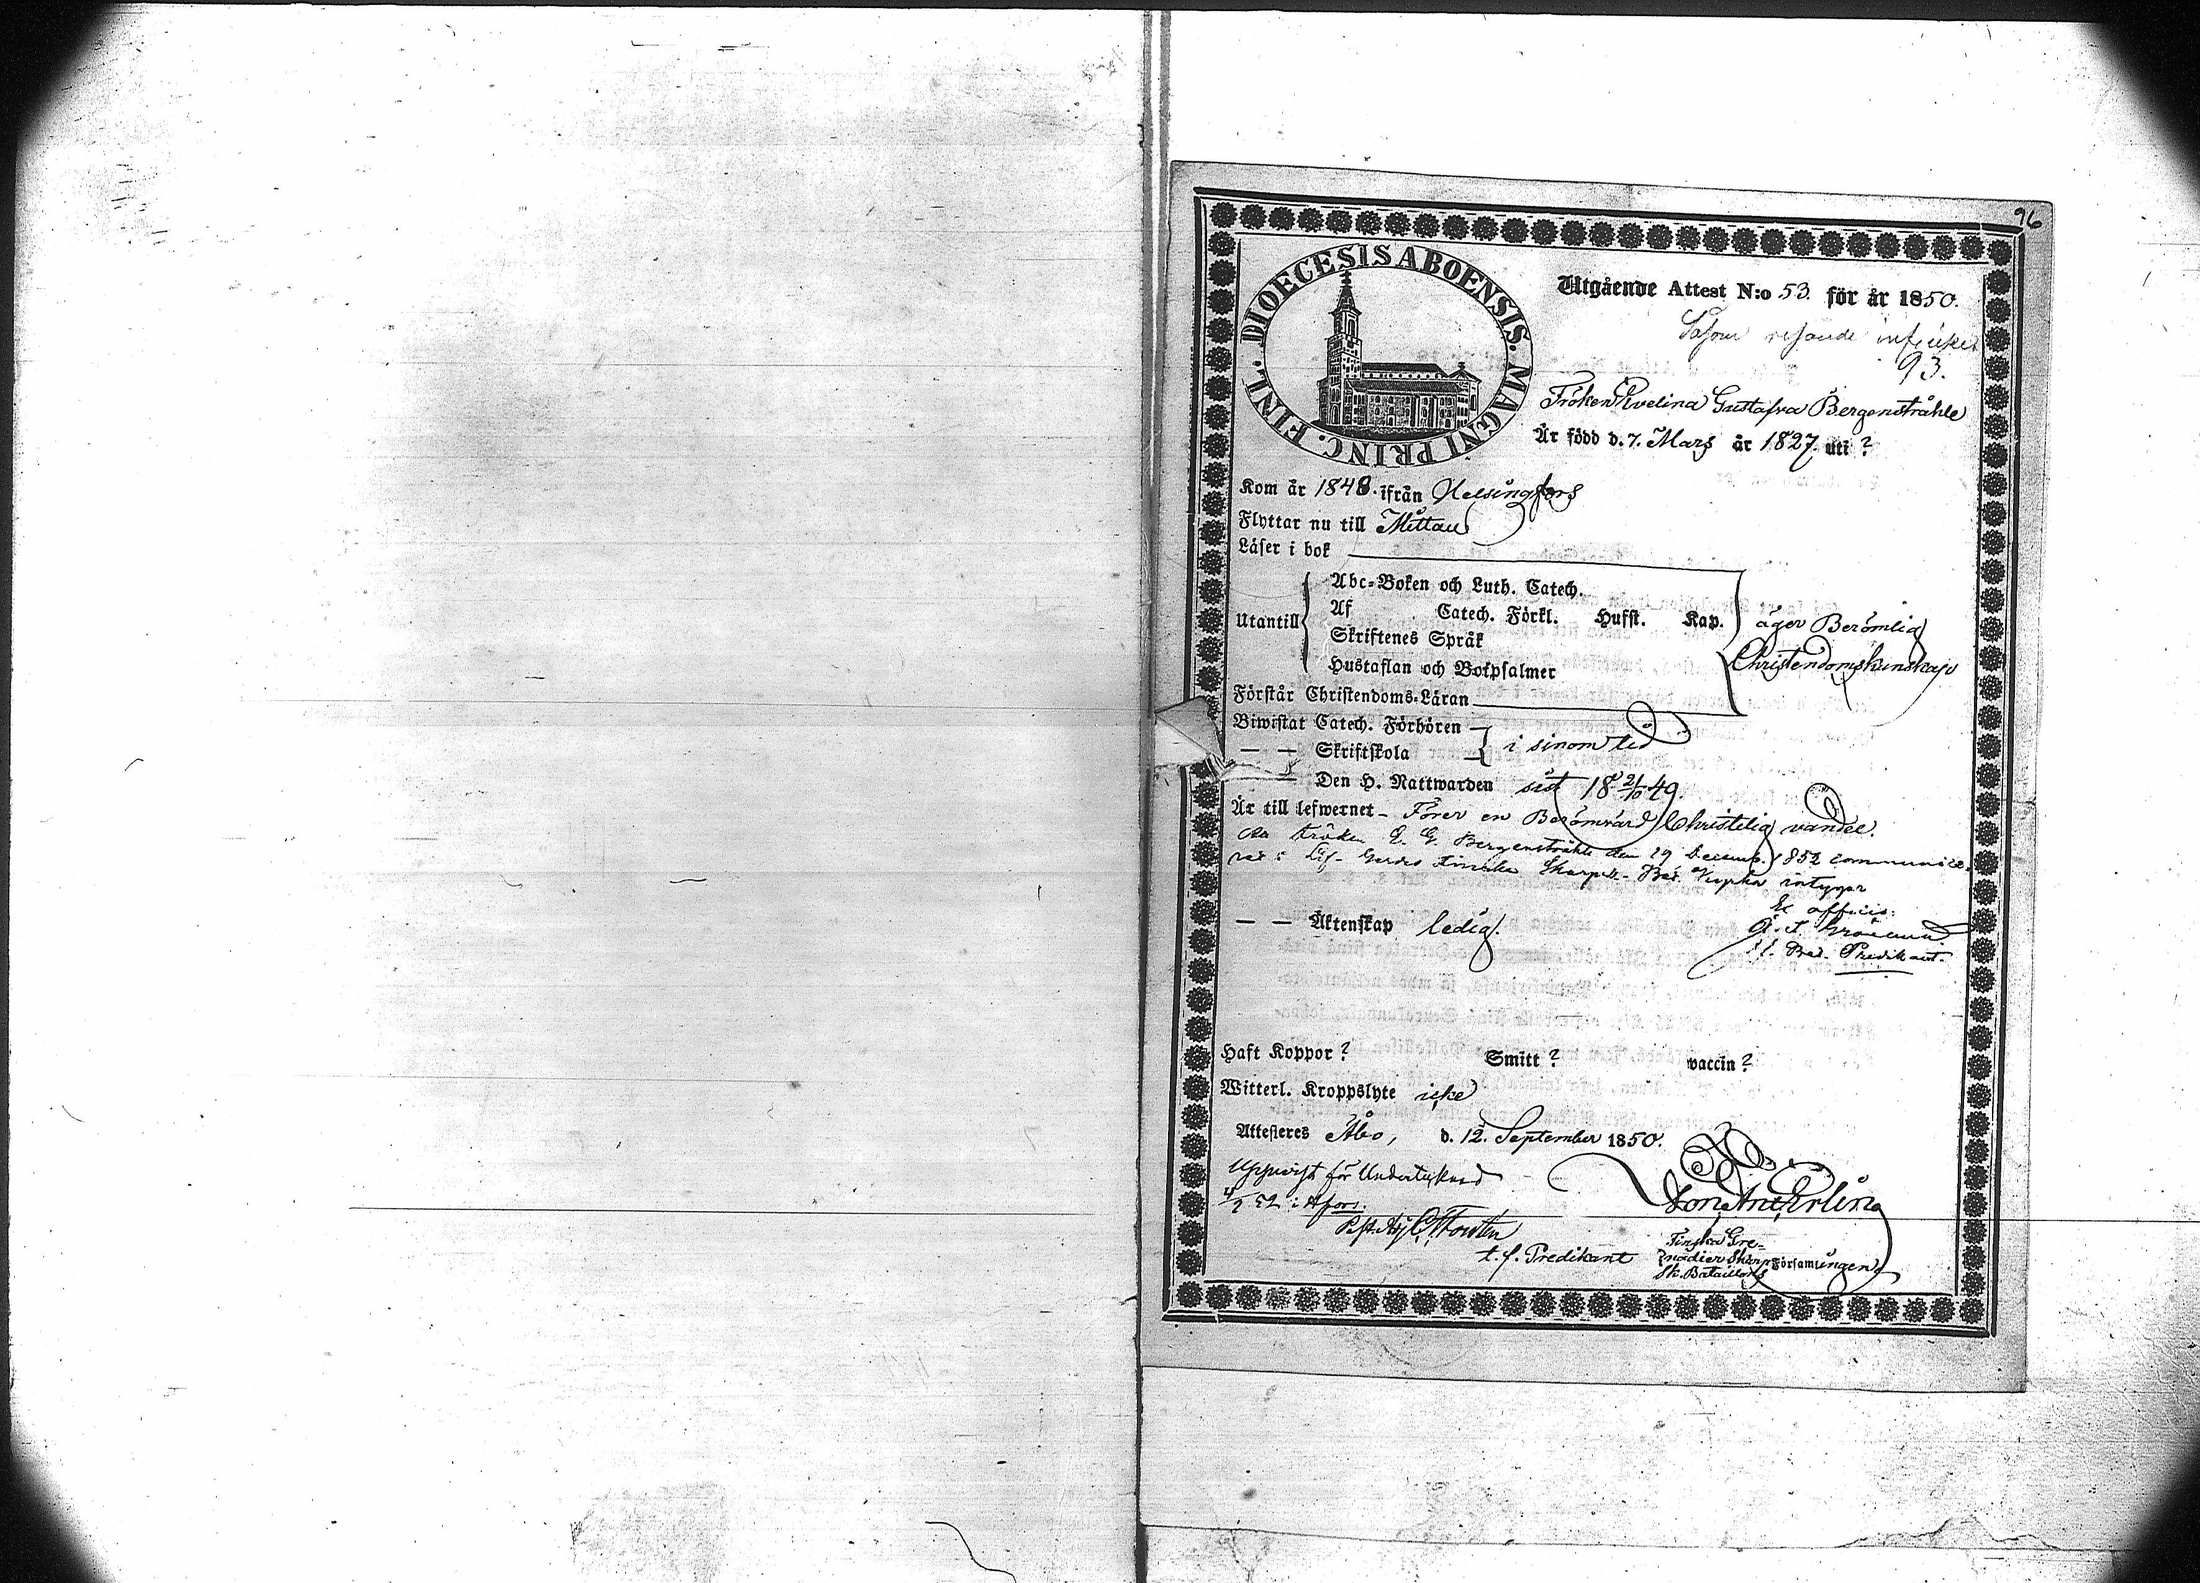 96
DIOECESIS ABOENSIS. MAGNI PRINC. FINL.
Utgående Attest N:o 53. för år 1850.
Såsom resande
93.
Fröken Evelina Gustafva Bergenstråhle
Är född d. 7. Mars år 1827. uti ?
Kom år 1848. ifrån Helsingfors
Flyttar nu till Mittau
Läser i bok
Abc-Boken och Luth. Catech.
Utantill Af Catech. Förkl. Hufst. Kap. äger Berömlig
Skriftenes Språk
Hustaflan och Botpsalmer Christendomskunskap
Förstår Christendoms-Läran
Biwistat Catech. Förhören
— — Skriftskola i sinom tid
Den H. Nattwarden sist 18 21/10 49.
Är till lefwernet - Förer en Berömvärd Christelig vandel.
Fröken E. G. Bergenstråhle den 19 Decemb. 1852 communice-
rat i Lif-Gardes Finska Skarpsk. Bat. Kyrka intygar
Ex officio:
— — Äktenskap ledig.
Bat. Predikant.
Haft Koppor ? Smitt ? vaccin ?
Witterl. Kroppslyte icke
Attesteres Åbo, d. 12. September 1850.
Uppvist för Undertecknad
52 i Hfors.
t. f. Predikant Finska Gre-
nadier Skarp Församlingen
sk. Bataillons